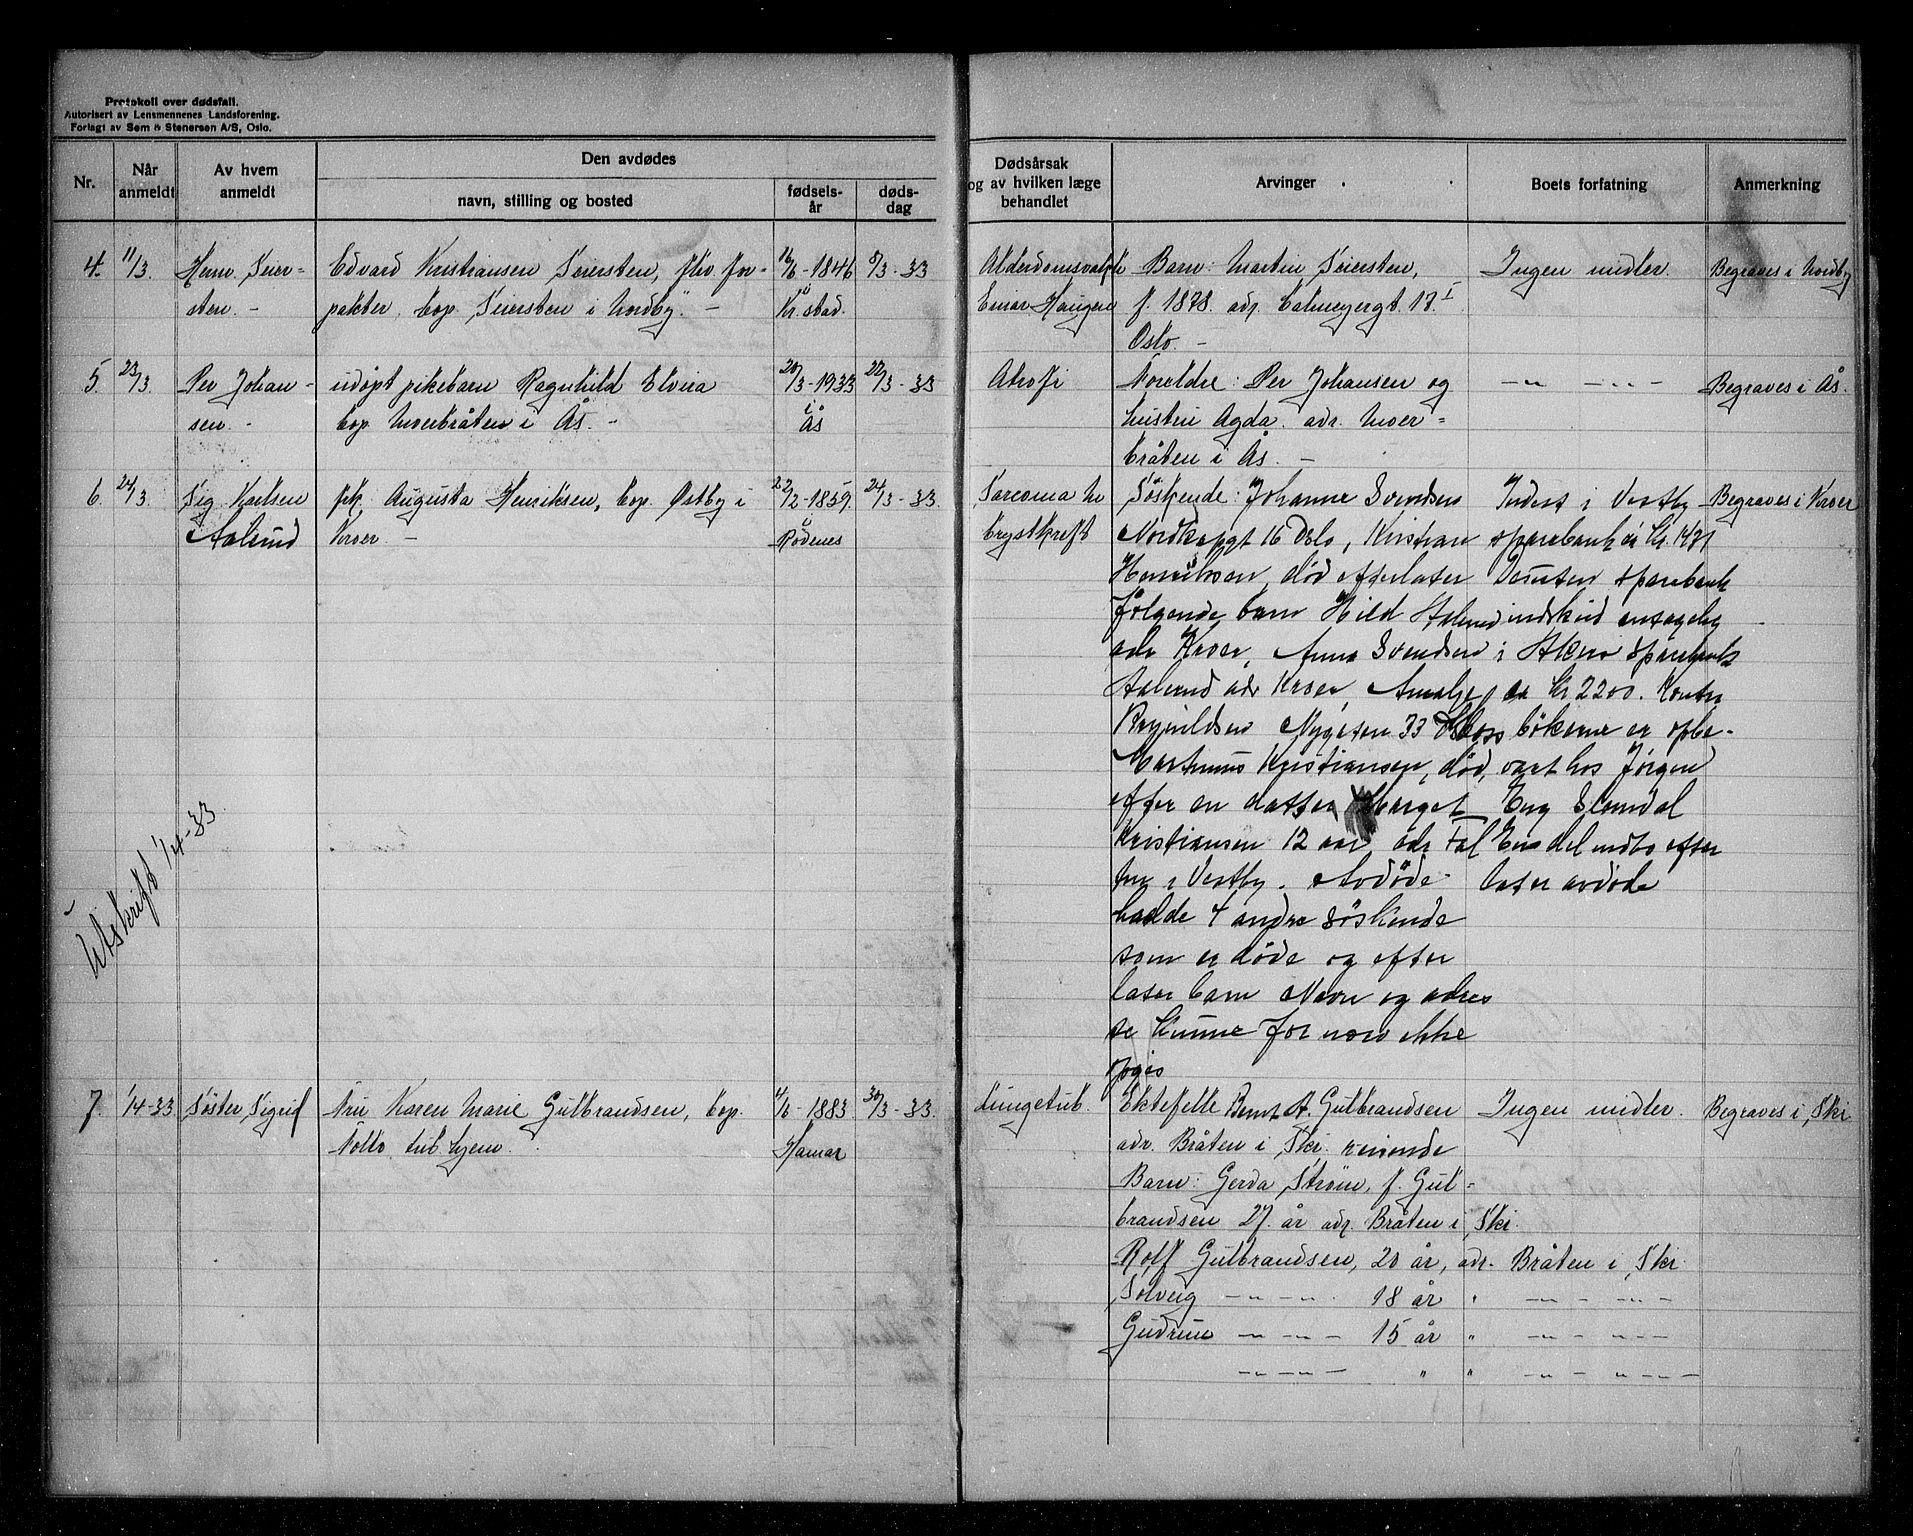 Protokoll over dødsfall.
Autorisert av Lensmennenes Landsforening.
Forlagt av Sem & Stenersen A/S, Oslo.
Nr.
Når anmeldt
Av hvem anmeldt
Den avdødes
navn, stilling og bosted
fødselsår
dødsdag
Dødsårsak og av hvilken læge behandlet
Arvinger
Boets forfatning
Anmerkning
4. 11/3. Herm. Seier=
sten. -
Edvard Kristiansen Seiersten, fhv. for-
pakter, bop. Seiersten i Nordby. -
16/6 - 1846
Kr.stad.
8/3 - 33
Alderdomsvakh
Einar Haugen
Barn: Martin Seiersten,
f. 1878. adr. Calmeyergt. 17 I
Oslo. -
Ingen midler.
Begraves i Nordby
5. 23/3. Per Johan-
sen. -
udøpt pikebarn Ragnhild Elvira
bop. Moerbråten i Ås. -
20/3 - 1933
i
Ås
22/3 - 33
Atrofi
Foreldre: Per Johansen og
hustru Agda. adr. Moer=
bråten i Ås. -
-"- -"-
Begraves i Ås.
6. 24/3. Sig. Karlsen
Aalerud
frk. Augusta Henriksen, bop. Østby i
Kroer. -
22/2 - 1859.
Rödenes
24/3 - 33.
Sarcoma
brystkreft
Søskende: Johanne Svendsen
Nordkapgt 16 Oslo, Kristian
Henriksen, død efterlater
følgende barn Hild Aalerud
adr Kroer, Anna Svendsen
Aalerud adr Kroer, Amalie
Ragnildsen Nygaten 33 Moss
Martinus Kristiansen, død,
efter en datter Marget
Kristiansen 12 aar adr
i Vestby. Avdøde
hadde 4 andre søskende
som er døde og efter
later barn Navn og adres
se kunne for nær ikke
opgis
Indest i Vestby
sparebank ca Kr. 1421
sparebank
indskud antagelig
i Akers sparebank
ca Kr 2200. Kontra
bøkerne er opbe-
vart hos Jørgen
Eng Slemdal
En del indbo efter
later avdøde
Begraves i Kroer
Utskrift 1/4-33
7. 1/4-33 Søster Sigrid
Fru Karen Marie Gulbrandsen, bop.
Follo tub. hjem.
4/6 - 1883
Hamar
30/3 - 33.
Lungetub.
Ektefelle Bernt A. Gulbrandsen
adr. Bråten i Ski.
Barn: Gerda Strøm, f. Gul=
brandsen 27. år adr. Bråten i Ski.
Rolf Gulbrandsen, 20 år, adr. Bråten i Ski
Solveig -"- -"- 18 år " -"- -"-
Gudrun -"- -"- 15 år " -"- -"-
-"- -"- " " -"- -"-
Ingen midler.
Begraves i Ski